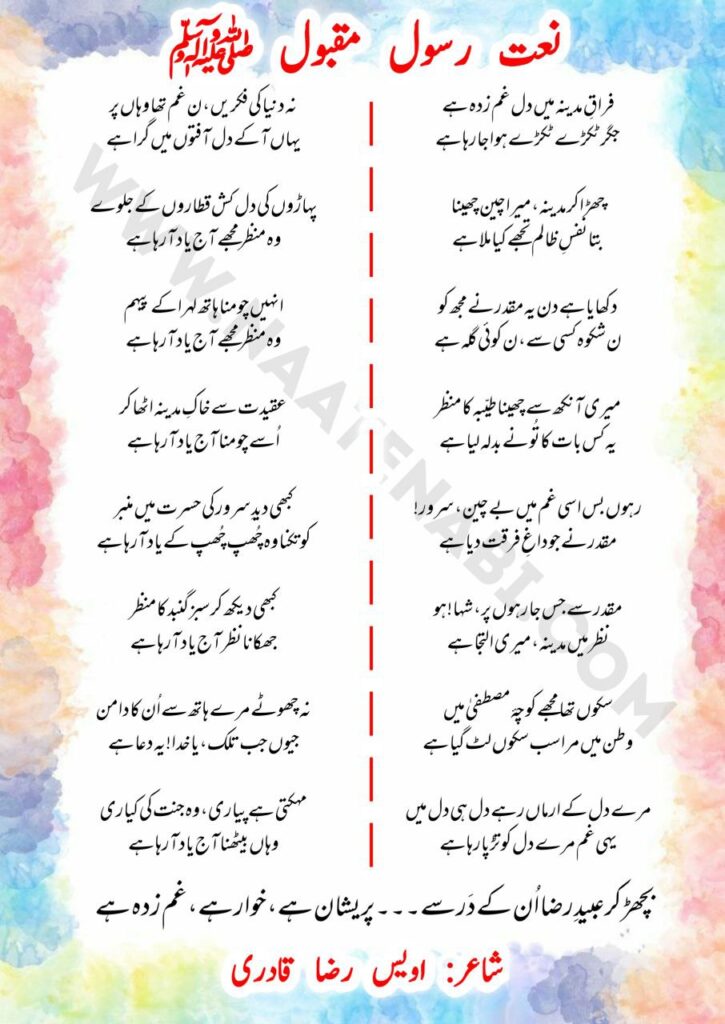 نعت رسول مقبول ﷺ
فراقِ مدینہ میں دل غم زدہ ہے
جگر ٹکڑے ٹکڑے ہوا جا رہا ہے
چھڑا کر مدینہ، میرا چین چھینا
بتا نفسِ ظالم تجھے کیا ملا ہے
دکھایا ہے دن یہ مقدر نے مجھ کو
ن شکوہ کسی سے، ن کوئی گلہ ہے
میری آنکھ سے چھینا طیّبہ کا منظر
یہ کس بات کا تُو نے بدلہ لیا ہے
رہوں بس اسی غم میں بے چین، سرور!
مقدر نے جو داغِ فرقت دیا ہے
مقدر سے جس جا رہوں پر، شہا! ہو
نظر میں مدینہ، میری التجا ہے
سکوں تھا مجھے کوچۂ مصطفیٰ میں
وطن میں مرا سب سکوں لٹ گیا ہے
مرے دل کے ارماں رہے دل ہی دل میں
یہی غم مرے دل کو تڑپا رہا ہے
نہ دنیا کی فکریں، ن غم تھا وہاں پر
یہاں آ کے دل آفتوں میں گرا ہے
پہاڑوں کی دل کش قطاروں کے جلوے
وہ منظر مجھے آج یاد آ رہا ہے
انہیں چومنا ہاتھ لہرا کے پیہم
وہ منظر مجھے آج یاد آ رہا ہے
عقیدت سے خاکِ مدینہ اٹھا کر
اُسے چومنا آج یاد آ رہا ہے
کبھی دیدِ سرور کی حسرت میں منبر
کو تکنا وہ چُھپ چُھپ کے یاد آ رہا ہے
کبھی دیکھ کر سبز گنبد کا منظر
جھکانا نظر آج یاد آ رہا ہے
نہ چھوٹے مرے ہاتھ سے اُن کا دامن
جیوں جب تلک، یا خدا! یہ دعا ہے
مہکتی ہے پیاری، وہ جنت کی کیاری
وہاں بیٹھنا آج یاد آ رہا ہے
بچھڑ کر عبیدِ رضا اُن کے دَر سے ۔۔۔ پریشان ہے، خوار ہے، غم زدہ ہے
شاعر: اویس رضا قادری
WWW.NAATENABI.COM